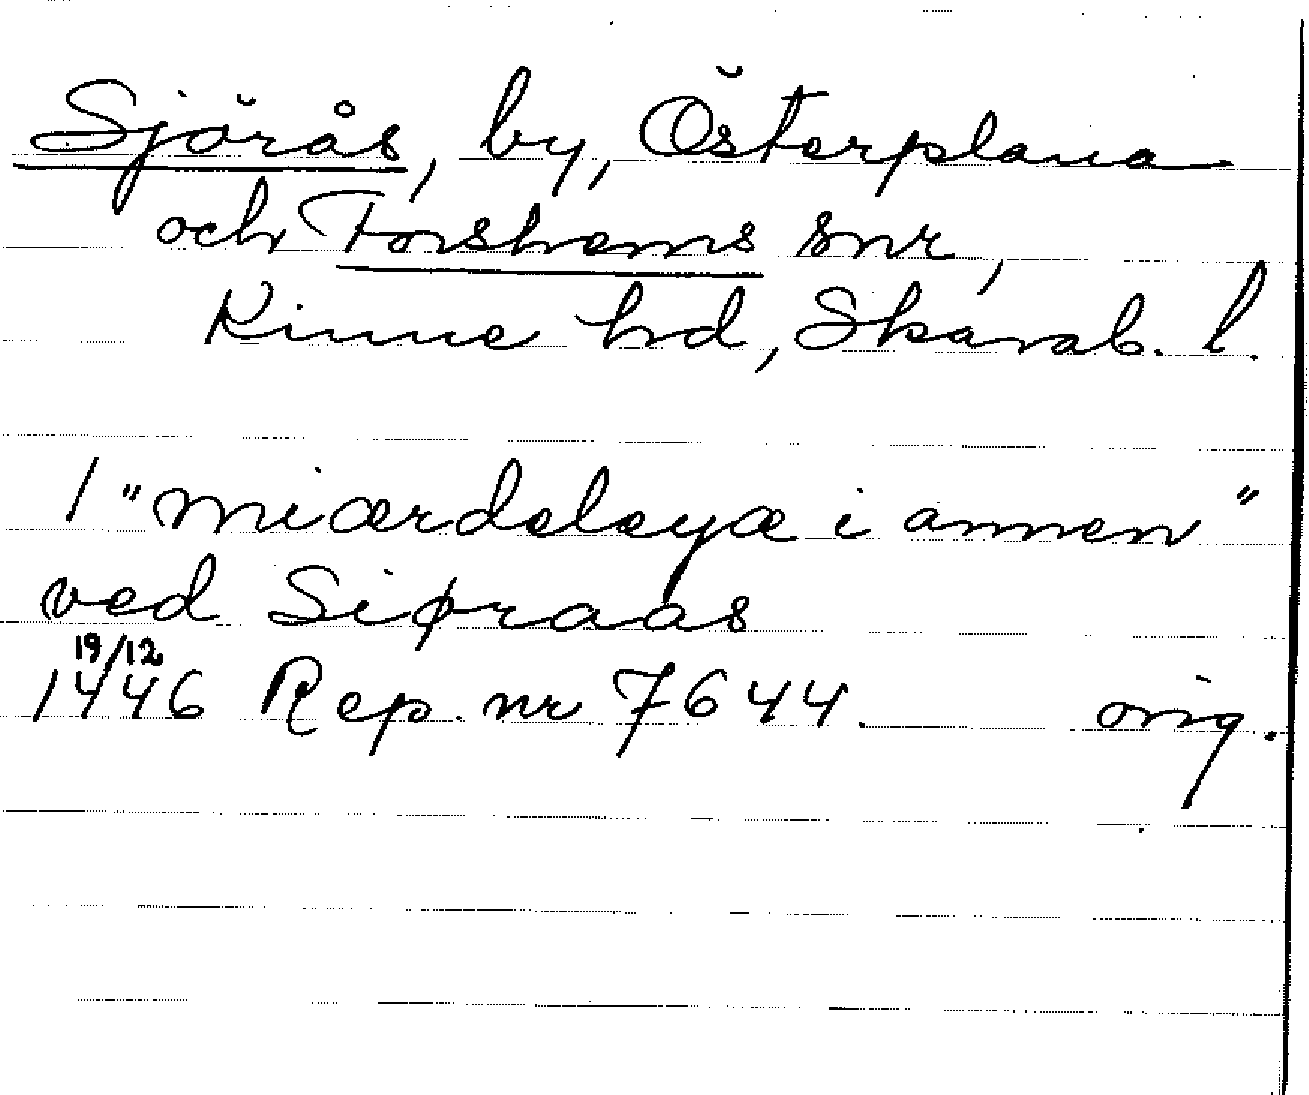 Sjörås, by, Österplana
och Forshems snr,
Kinne hd, Skarab. l.
1 "miærdeleyæ i annen"
ved Siøraas
19/12
1446 Rep. nr 7644. orig.